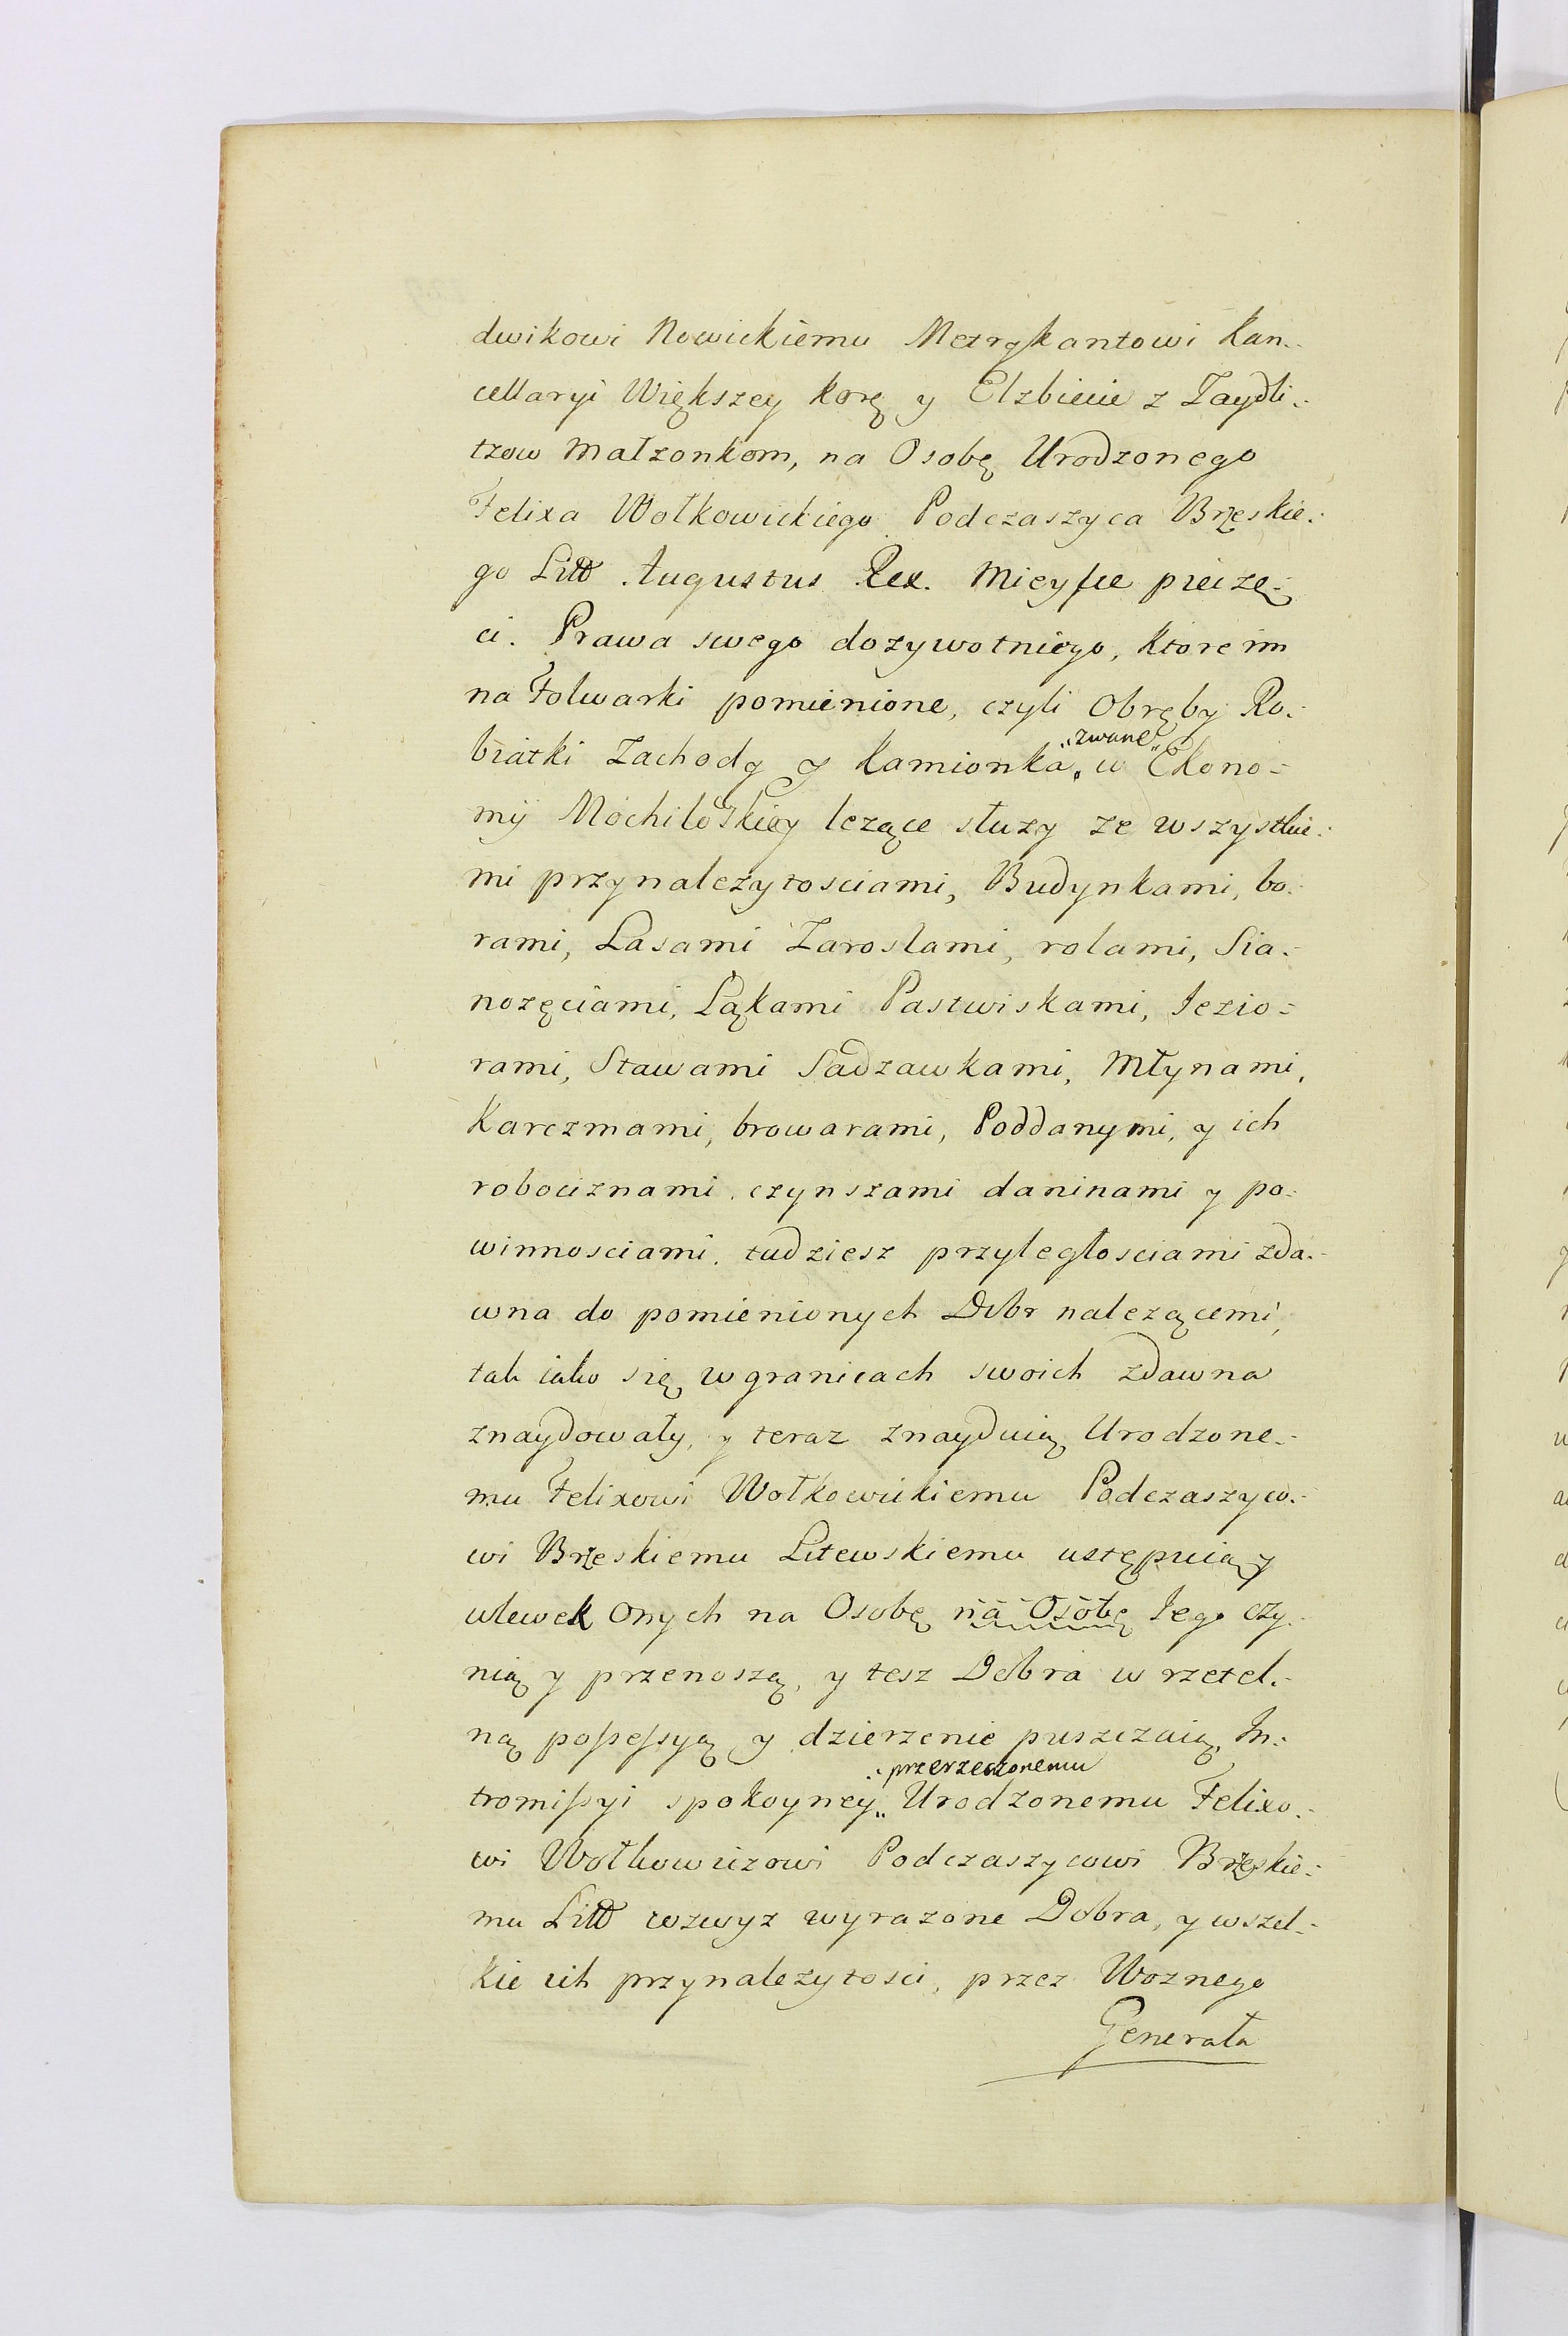 dwikowi Nowickiemu Metrykantowi Kan-
cellaryi Większey Korę y Elzbiecie z Zaydli-
tzow Małzonkom, na Osobę Urodzonego
Felixa Wołkowickiego Podczaszyca Brzeskie-
go Litt Augustus Rex. Mieysce pieczę-
ci. Prawa swego dozywotniego, ktore im
na Folwarki pomienione, czyli Obręby Ro-
biatki Zachody y Kamionka „zwane„ w Ekono-
mij Mochilowskiey lezące słuzy ze wszystkie-
mi przynalezytosciami, Budynkami, bo-
rami, Lasami Zaroslami, rolami, Sia-
nozęciami, Łąkami Pastwiskami, Iezio-
rami, Stawami Sadzawkami, Młynami,
Karczmami, browarami, Poddanymi, y ich
robociznami, czynszami daninami y po-
winnosciami, tudziesz przyległosciami zda-
wna do pomienionych Dobr nalezącemi,
tak iako się w granicach swoich zdawna
znaydowały, y teraz znayduią Urodzone-
mu Felixowi Wołkowickiemu Podczaszyco-
wi Brzeskiemu Litewskiemu ustępuią y
wlewek Onych na Osobę na Osobę Iego czy-
nią y przenoszą, y tesz Dobra w rzetel-
ną possessyą y dzierzenie puszczaią, In-
tromissyi spokoyney „przerzeczonemu Urodzonemu Felixo-
wi Wołkowiczowi Podczaszycowi Brzeskie-
mu Litt wzwyz wyrazone Dobra, y wszel-
kie ich przynalezytosci, przez Woznego
Generała